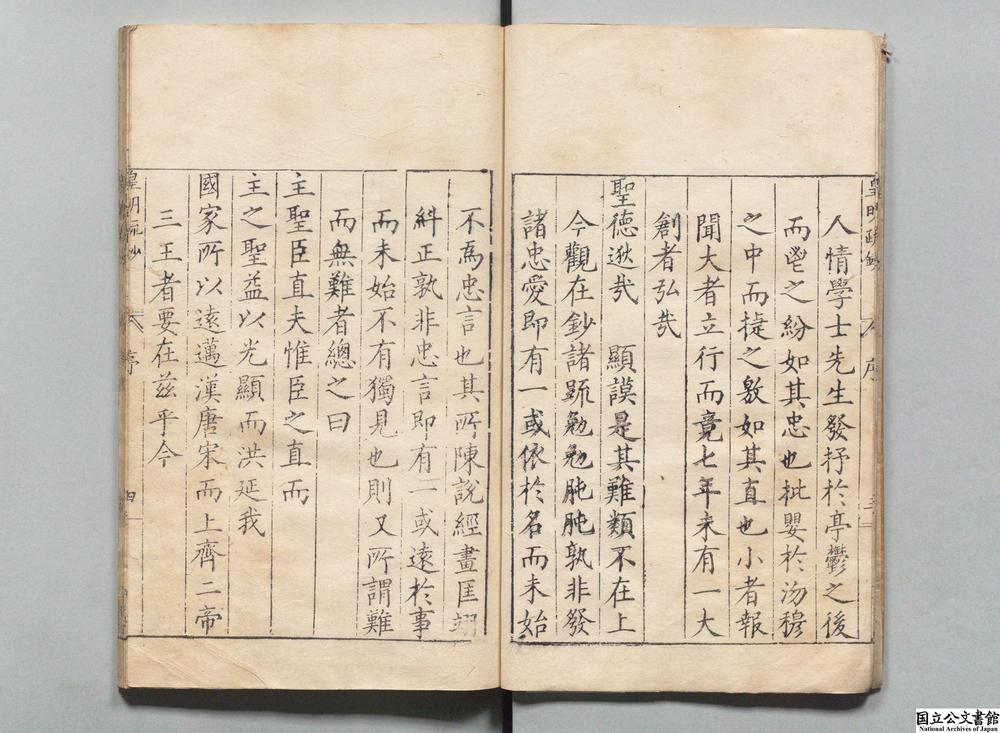 皇明疏鈔
序
人情學士先生發抒於亭鬱之後
而鬯之紛如其忠也批嬰於沕穆
之中而㨗之敫如其直也小者報
聞大者立行而竟七年未有一大
創者弘哉
聖德逖哉　顯謨是其難類不在上
今觀在鈔諸疏勉勉肫肫孰非發
諸忠愛即有一或依於名而未始
不爲忠言也其所陳說經畫匡翊
糾正孰非忠言即有一或遠於事
而未始不有獨見也則又所謂難
而無難者總之曰
主聖臣直夫惟臣之直而
主之聖益以光顯而洪延我
國家所以遠邁漢唐宋而上齊二帝
三王者要在兹乎今
皇明疏鈔
序
四
国立公文書館
National Archives of Japan